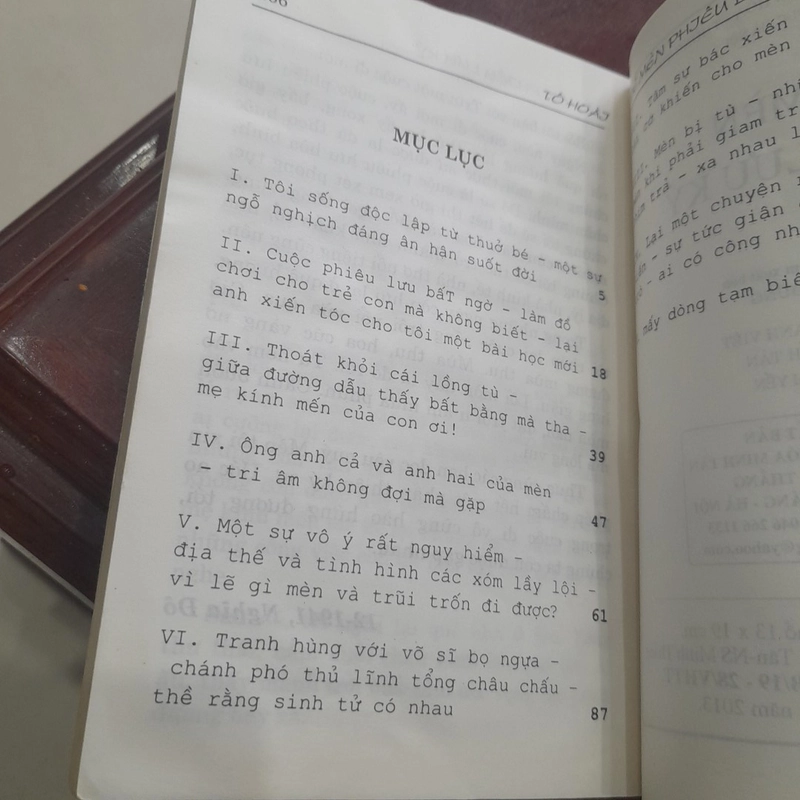 TÔ HOÀI
MỤC LỤC
I. Tôi sống độc lập từ thuở bé - một sự
ngỗ nghịch đáng ân hận suốt đời 5
II. Cuộc phiêu lưu bấT ngờ - làm đồ
chơi cho trẻ con mà không biết - lại
anh xiến tóc cho tôi một bài học mới 18
III. Thoát khỏi cái lồng tù -
giữa đường dẫu thấy bất bằng mà tha -
mẹ kính mến của con ơi! 39
IV. Ông anh cả và anh hai của mèn
- tri âm không đợi mà gặp 47
V. Một sự vô ý rất nguy hiểm -
địa thế và tình hình các xóm lầy lội -
vì lẽ gì mèn và trũi trốn đi được? 61
VI. Tranh hùng với võ sĩ bọ ngựa -
chánh phó thủ lĩnh tổng châu chấu -
thề rằng sinh tử có nhau 87
MÈN PHIÊU
Tâm sự bác xiến
khiến cho mèn
Mèn bị tù -
khi phải giam
trả - xa nhau
Lại một chuyện
- sự tức giận
- ai có công
mấy dòng tạm